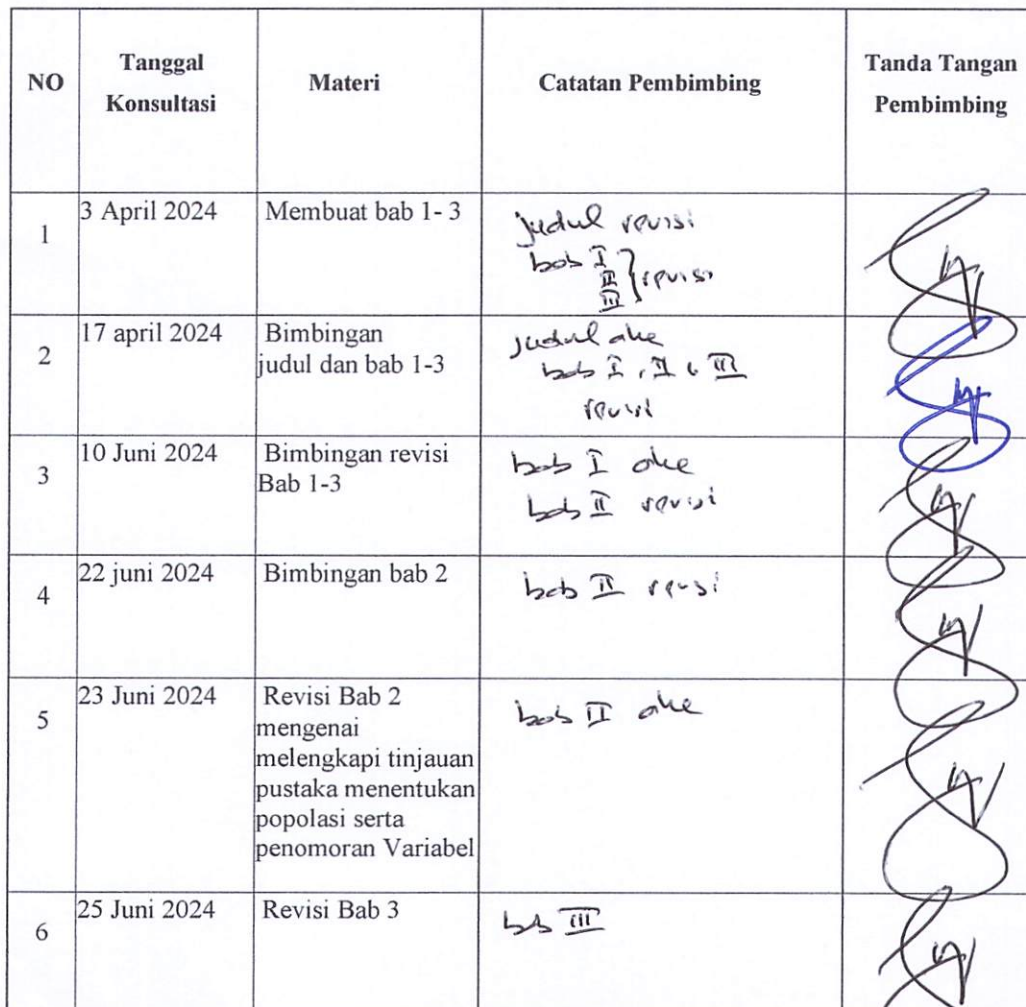 NO
Tanggal
Konsultasi
Materi
Catatan Pembimbing
Tanda Tangan
Pembimbing
1
3 April 2024
Membuat bab 1- 3
judul revisi
bab I
II
III
revisi
2
17 april 2024
Bimbingan
judul dan bab 1-3
judul oke
bab I, II & III
revisi
3
10 Juni 2024
Bimbingan revisi
Bab 1-3
bab I oke
bab II revisi
4
22 juni 2024
Bimbingan bab 2
bab II revisi
5
23 Juni 2024
Revisi Bab 2
mengenai
melengkapi tinjauan
pustaka menentukan
popolasi serta
penomoran Variabel
bab II oke
6
25 Juni 2024
Revisi Bab 3
bab III